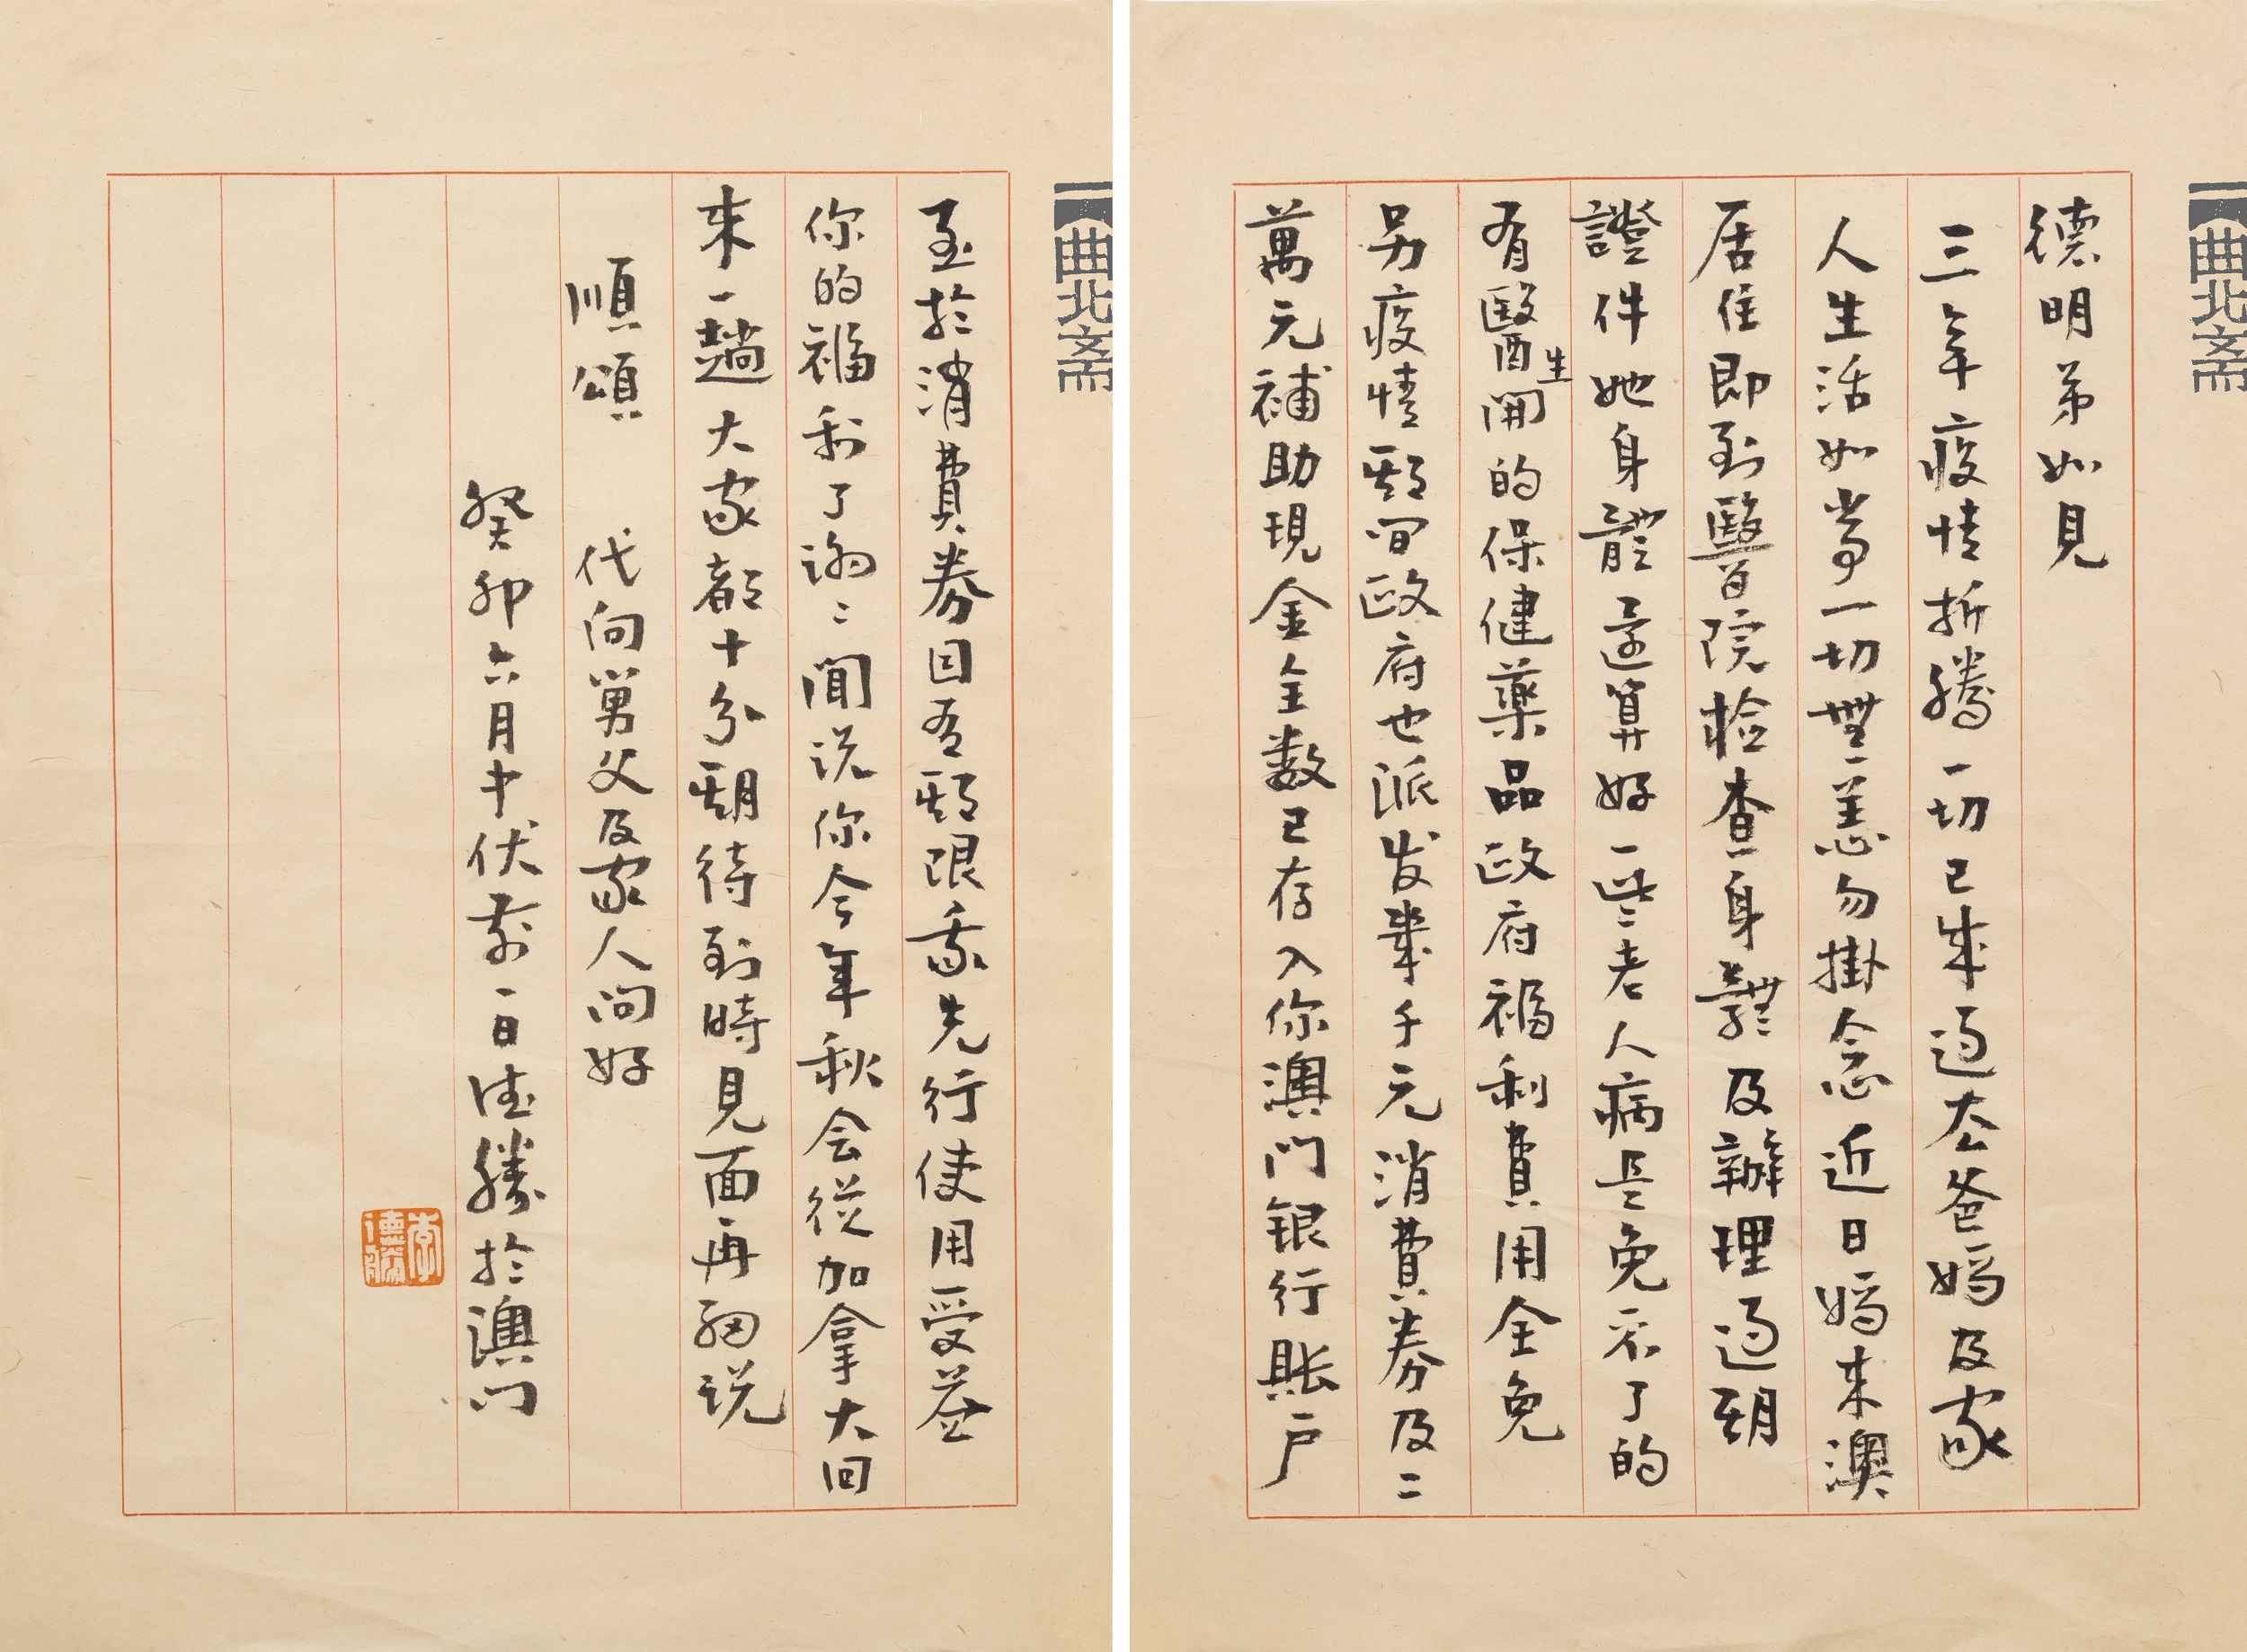 曲北斋
德明弟如見
三年疫情折騰一切已成過去爸媽及家
人生活如常一切無恙勿掛念近日媽来澳
居住即到醫院检查身體及辦理過期
證件她身體還算好一些老人病是免不了的
有醫生開的保健藥品政府福利費用全免
另疫情期间政府也派发柒千元消費券及二
萬元補助現金全数已存入你澳门银行賬户
曲北斋
至於消費券因有期限我先行使用受益
你的福利了谢〻聞说你今年秋会從加拿大回
来一趟大家都十分期待到時見面再細说
順頌 代向舅父及家人问好
癸卯六月中伏前一日德勝於澳门
李德勝